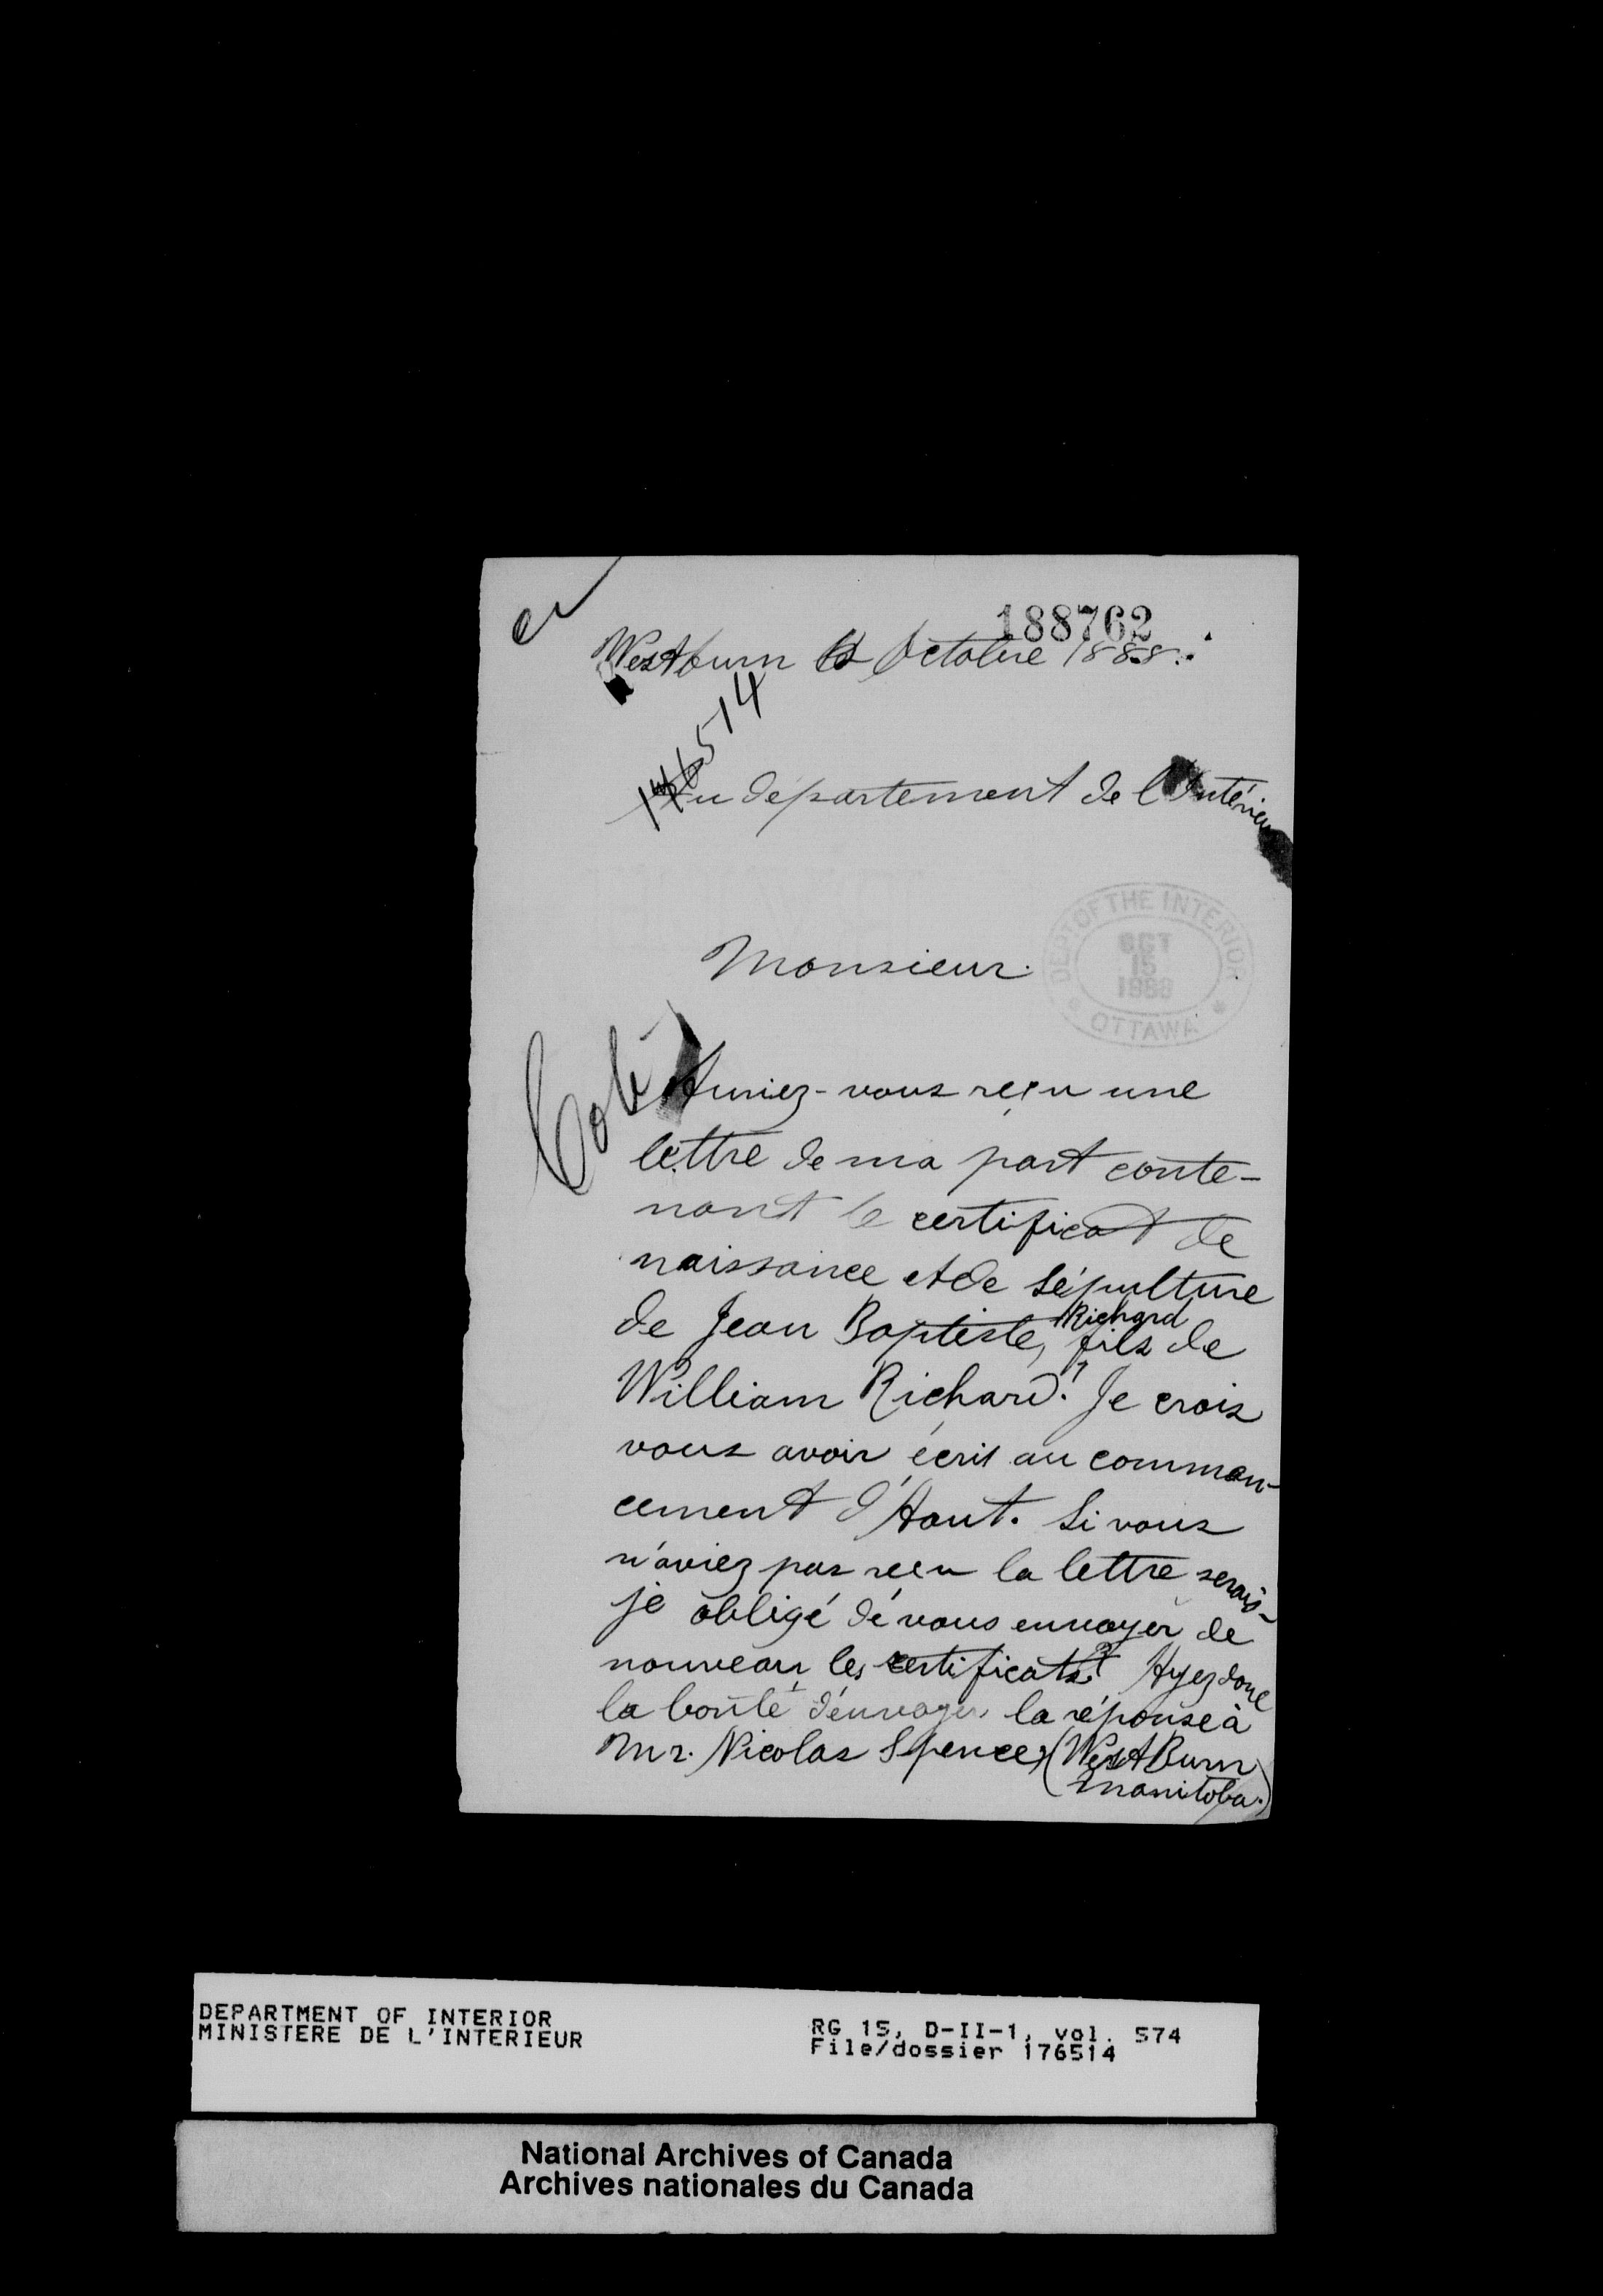 188762
Westburn Octobre 1888.
176514
Au département de l'Intérieur
Monsieur.
DEPT OF THE INTERIOR
OCT
15
1888
OTTAWA
Auriez-vous reçu une
lettre de ma part conte-
nant le certificat de
naissance et de sépulture
de Jean Baptiste, Richard fils de
William Richard? Je crois
vous avoir écrit au comman-
cement d'Aout. Si vous
n'aviez pas reçu la lettre serais-
je obligé de vous envoyer de
nouveau les certificats? Ayez donc
la bonté d'envoyer la réponse à
Mr. Nicolas Spence, (WestBurn
Manitoba.)
DEPARTMENT OF INTERIOR
MINISTERE DE L'INTERIEUR
RG 15, D-II-1, vol. 574
File/dossier 176514
National Archives of Canada
Archives nationales du Canada